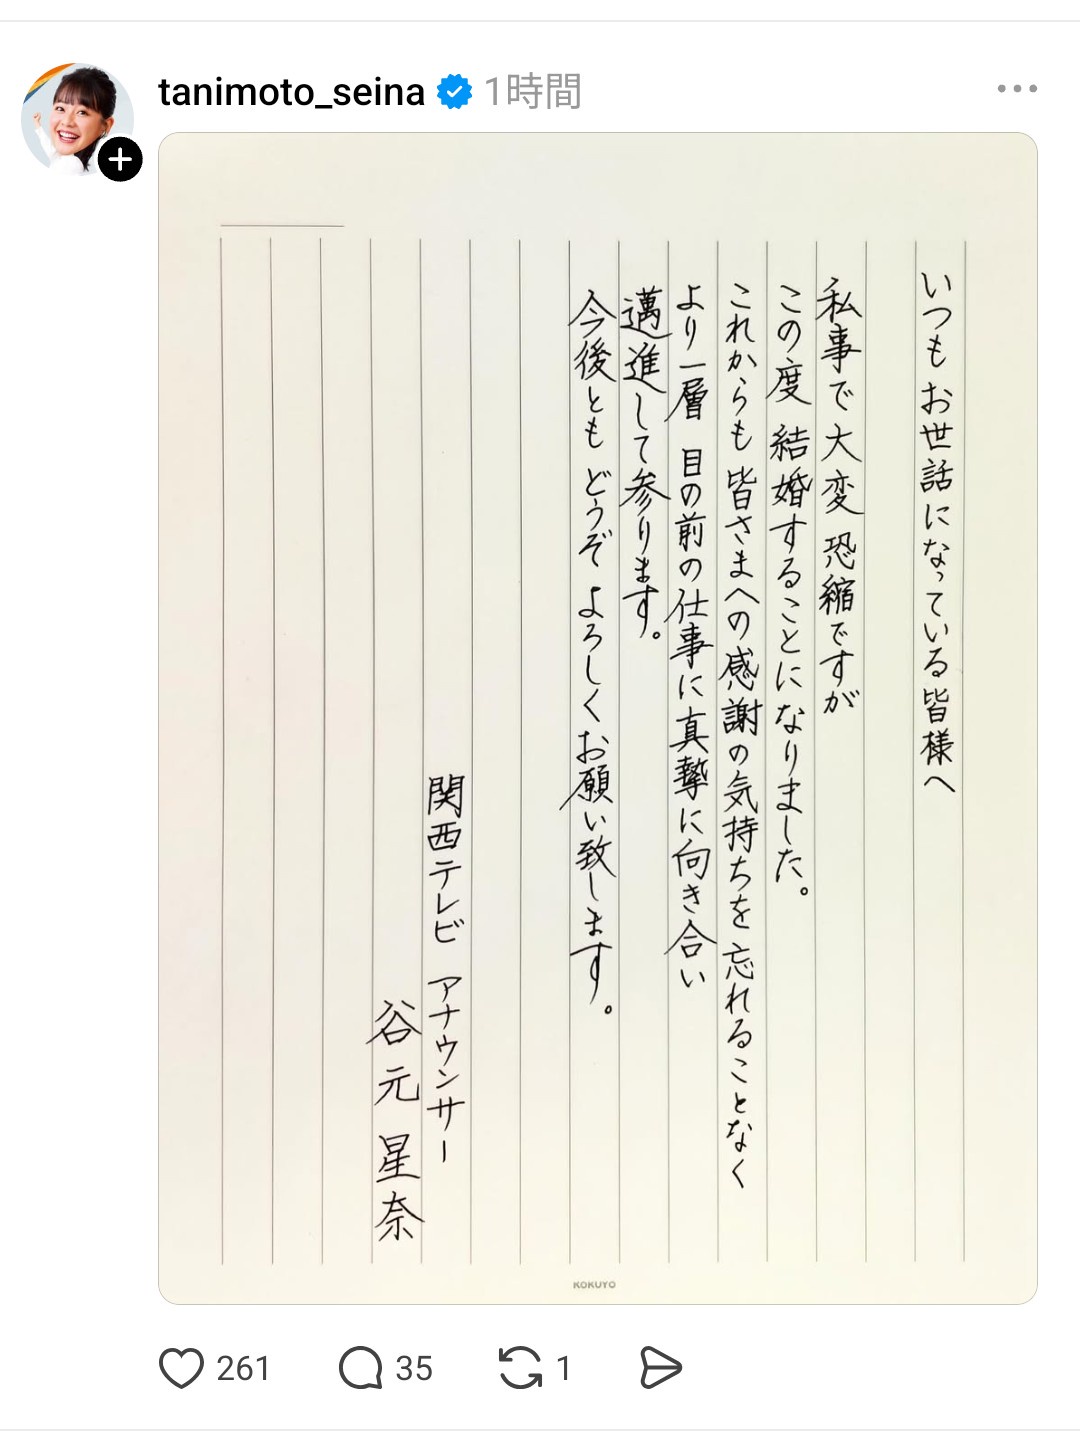 tanimoto_seina 1時間
いつもお世話になっている皆様へ
私事で大変恐縮ですが
この度 結婚することになりました。
これからも 皆さまへの感謝の気持ちを 忘れることなく
より一層 目の前の仕事に真摯に向き合い
邁進して参ります。
今後とも どうぞ よろしくお願い致します。
関西テレビ アナウンサー
谷元 星奈
KOKUYO
261 35 1